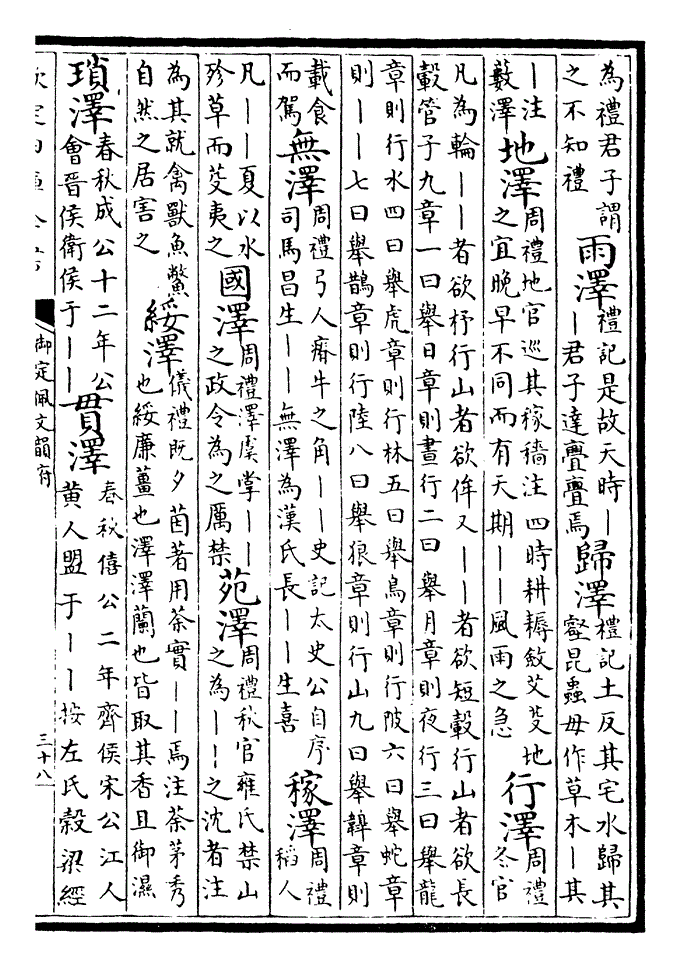 為禮君子謂
之不知禮
雨澤
禮記是故天時丨
丨君子達亹亹焉
歸澤
禮記土反其宅水歸其
壑昆蟲毋作草木丨其
丨注
藪澤
地澤
周禮地官巡其稼穡注四時耕耨斂艾芟地
之宜晚早不同而有天期丨丨風雨之急
行澤
周禮
冬官
凡為輪丨丨者欲杼行山者欲侔又丨丨者欲短轂行山者欲長
轂管子九章一曰舉日章則晝行二曰舉月章則夜行三曰舉龍
章則行水四曰舉虎章則行林五曰舉鳥章則行陂六曰舉蛇章
則丨丨七曰舉鵲章則行陸八曰舉狼章則行山九曰舉韟章則
載食
而駕
無澤
周禮弓人瘠牛之角丨丨史記太史公自序
司馬昌生丨丨無澤為漢氏長丨丨生喜
稼澤
周禮
稻人
凡丨丨夏以水
殄草而芟夷之
國澤
周禮澤虞掌丨丨
之政令為之厲禁
苑澤
周禮秋官雍氏禁山
之為丨丨之沈者注
為其就禽獸魚鱉
自然之居害之
綏澤
儀禮既夕茵著用荼實丨丨焉注荼茅秀
也綏廉薑也澤澤蘭也皆取其香且御濕
瑣澤
春秋成公十二年公
會晉侯衛侯于丨丨
貫澤
春秋僖公二年齊侯宋公江人
黄人盟于丨丨按左氏穀梁經
御定佩文韻府
三十八